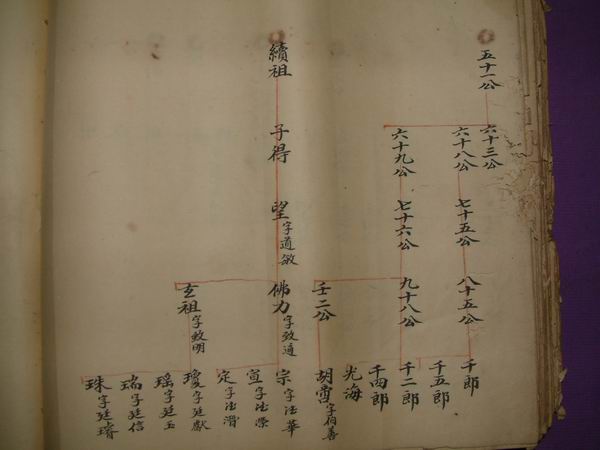 五十一公
續祖
六十三公
六十八公
六十九公
子得
七十五公
七十六公
望 字道敏
八十五公
九十八公
壬二公
佛力 字致通
玄祖 字致明
千郎
千五郎
千二郎
千四郎
光海
字伯善
宗 字法華
宣 字法榮
定 字法滑
瓊 字廷獻
瑶 字廷玉
瑞 字廷信
珠 字廷璿